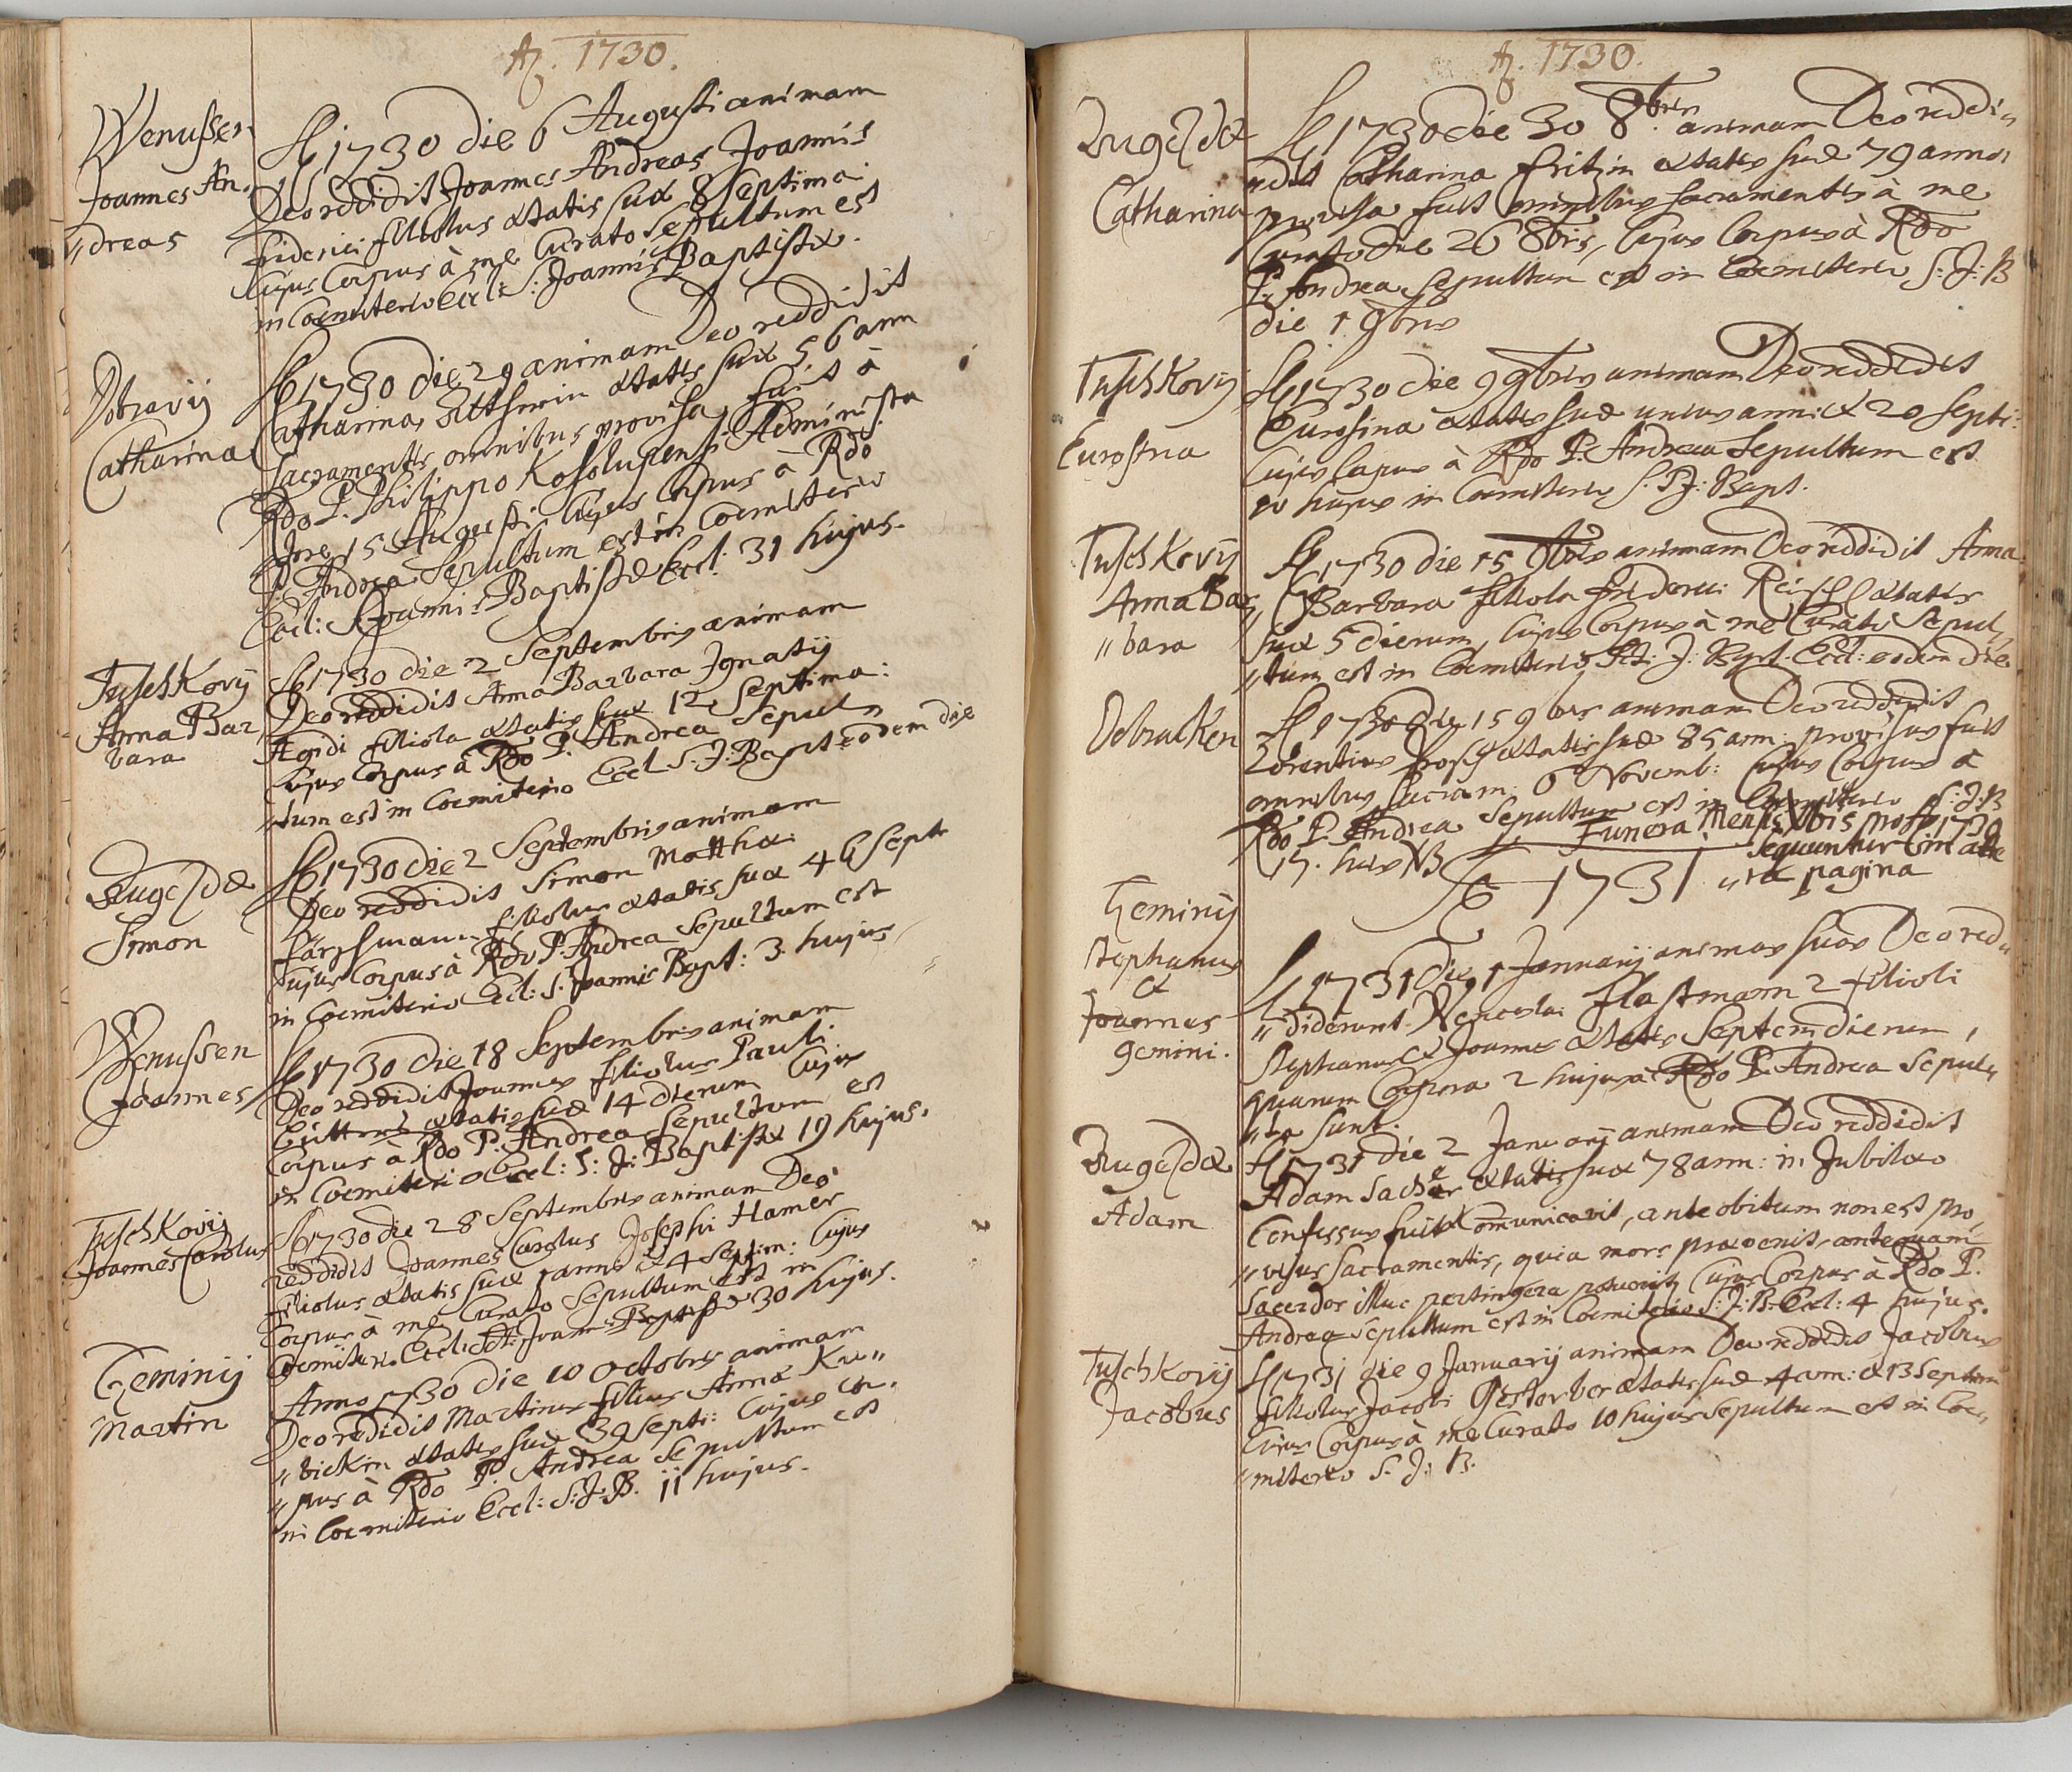 A. 1730.
Wenussen
Joannes An,
"dreas
A 1730 die 6 Augusti animam
Deo reddidit Joannes Andreas Joannis
Friderici filiolus ætatis suæ 8 septima
Cujus Corpus à me Curato Sepultum est
in Coemiterio Eccl: S: Joannis Baptistæ.
Dobravij
Catharina
A 1730 die 29 animam Deo reddidit
Catharina ætatis suæ 56 ann
sacramentis omnibus provisa, fuit à
Rdo P. Philippo Kosolupensi Administra
tore 15 Augusti Cujus Corpus à Rdo
P. Andrea Sepultum est in Coemiterio
Eccl: S. Joannis Baptistæ Eccl. 31 hujus.
Tuschkovij
Anna Bar,
bara
A 1730 die 2 Septembris animam
Deo reddidit Anna Barbara Ignatij
Agidi filiola ætatis suæ 12 Septima:
Cujus Corpus à Rdo P. Andrea Sepul"
"tum est in Coemiterio Eccl. S. J. Bapt: eodem die
Lugezdæ
Simon
A 1730 die 2 Septembris animam
Deo reddidit Simon Matthæi
filiolus ætatis suæ 46 Sept
cujus Corpus à Rdo P. Andrea Sepultum est
in Coemiterio Eccl: S. Joannis Bapt: 3. hujus
Wenussen
Joannes
A 1730 die 18 Septembris animam
Deo reddidit Joannes filiolus Pauli
ætatis suæ 14 dierum Cujus
Corpus à Rdo P. Andrea Sepultum est
in Coemiterio Eccl: S: J: Baptistæ 19 hujus.
Tuschkovij
Joannes Carolus
A 1730 die 28 Septembris animam Deo
reddidit Joannes Carolus Josephi Hamer
filiolus ætatis suæ 1 anni & 4 Septim: Cujus
Corpus à me Curato Sepultum est in
Coemiterio Eccl: St: Joan: Baptistæ 30 hujus.
Geminij
Martin
Anno 1730 die 10 Octobris animam
Deo redidit Martinus filius Annæ Ku"
"bickin ætatis suæ 39 Septi: Cujus Cor,
"pus à Rdo P. Andrea Sepultum est
in Coemiterio Eccl: S: J: B. 11 hujus.
A. 1730.
Lugezdæ
Catharina
A 1730 die 30 8bris animam Deo reddi"
"dit Catharina Fritzin ætatis suæ 79 annor
provisa fuit omnibus sacramentis à me
Curato die 26 8bris, Cujus Corpus à Rdo
P. Andrea Sepultum est in Coemiterio S: J: B
die 1 9bris
Tuschkovij
Eurosina
A 1730 die 9 9bris animam Deo reddidit
Eurosina ætatis suæ unius anni & 20 Septi:
Cujus Corpus à Rdo P. Andrea Sepultum est
10 hujus in Coemiterio S. J: Bapt.
Tuschkovij
Anna Bar
"bara
A 1730 die 15 9bris animam Deo reddidit Anna
Barbara filiola Friderici Reischl ætatis
suæ 5 dierum, Cujus Corpus à me Curato Sepul"
"tum est in Coemiterio Sti: J: Bapt. Eccl: eodem die
Dobraken
A 1730 die 15 9bris animam Deo reddidit
Lorentius ætatis suæ 85 ann: provisus fuit
omnibus Sacram: 6 Novemb: Cujus Corpus à
Rdo P. Andrea Sepultum est in Coemiterio S: J: B
17. hujus NB Funera Mensis Xbris pro A 1730
Sequuntur in alte
"ra pagina
A 1731
Geminij
Stephanus
&
Joannes
gemini.
A 1731 die 1 Januarij animas suas Deo red"
"diderunt Wenceslai Flastmann 2 filioli
Stephanus & Joannes ætatis Septem dierum,
quarum Corpora 2 hujus à Rdo P. Andrea Sepul"
"ta sunt.
Lugezdæ
Adam
A 1731 die 2 Januarij animam Deo reddidit
Adam Sacher ætatis suæ 78 ann: in Jubilæo
Confessus fuit & Comunicavit, ante obitum non est pro,
"visus Sacramentis, quia mors prævenit, antequam
Sacerdos illuc pertingere potuerit, Cujus Corpus à Rdo P.
Andrea Sepultum est in Coemiterio S: J: B. Eccl: 4 hujus.
Tuschkovij
Jacobus
A 1731 die 9 Januarij animam Deo reddidit Jacobus
filiolus Jacobi Gestorber ætatis suæ 4 ann: & 13 Septim
Cujus Corpus à me Curato 10 hujus Sepultum est in Coe"
"miterio S. J: B.